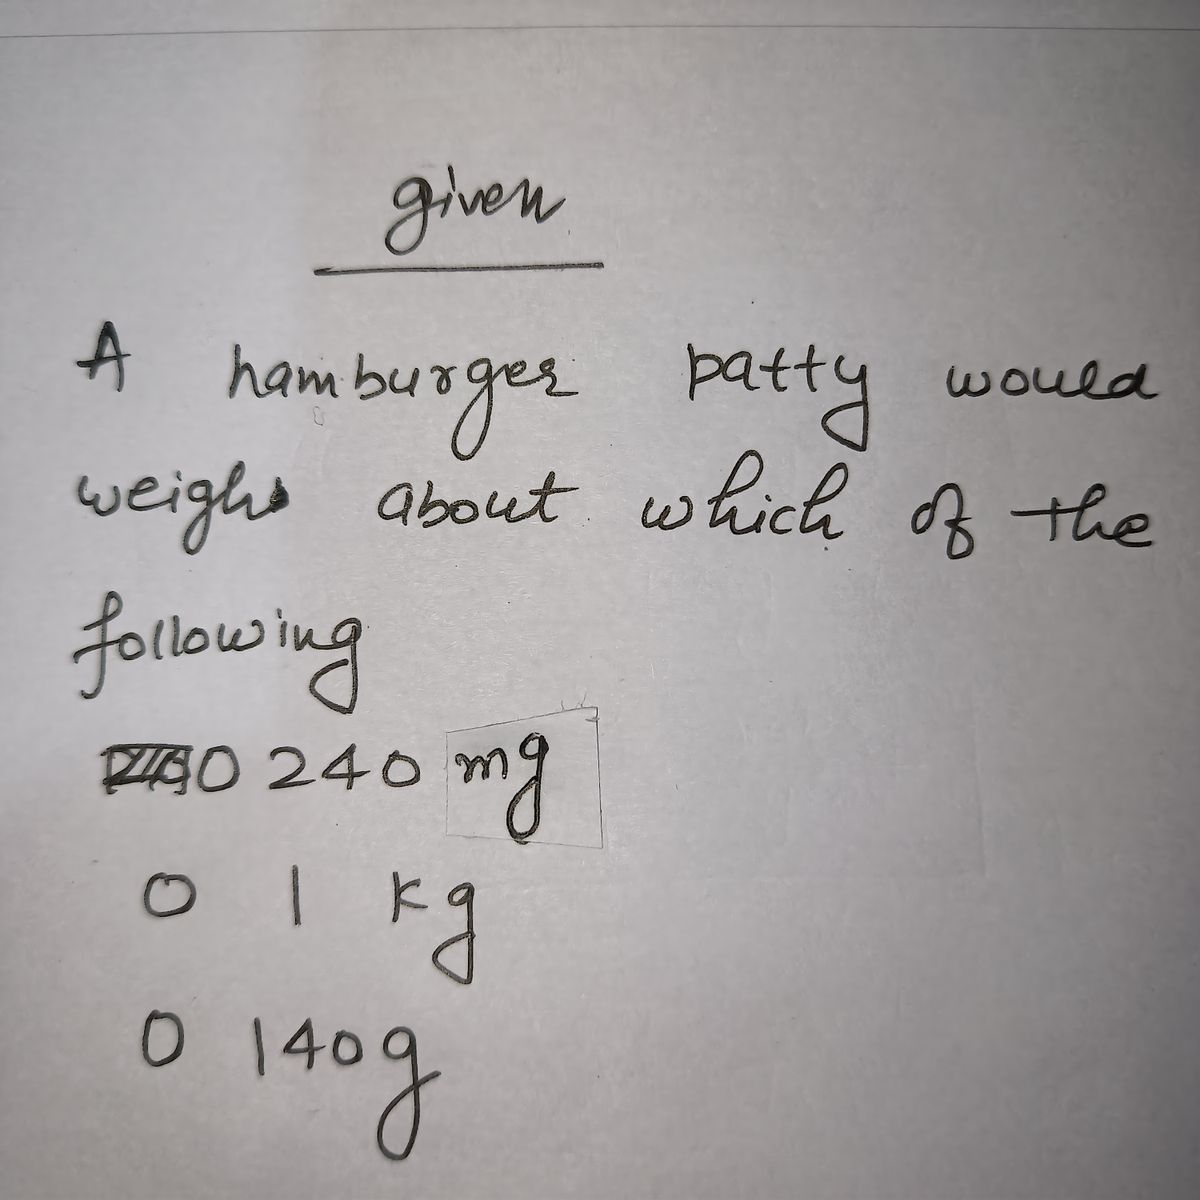 given
A hamburger patty would
weighs about which of the
following
0 240 mg
0 1 kg
0 140g